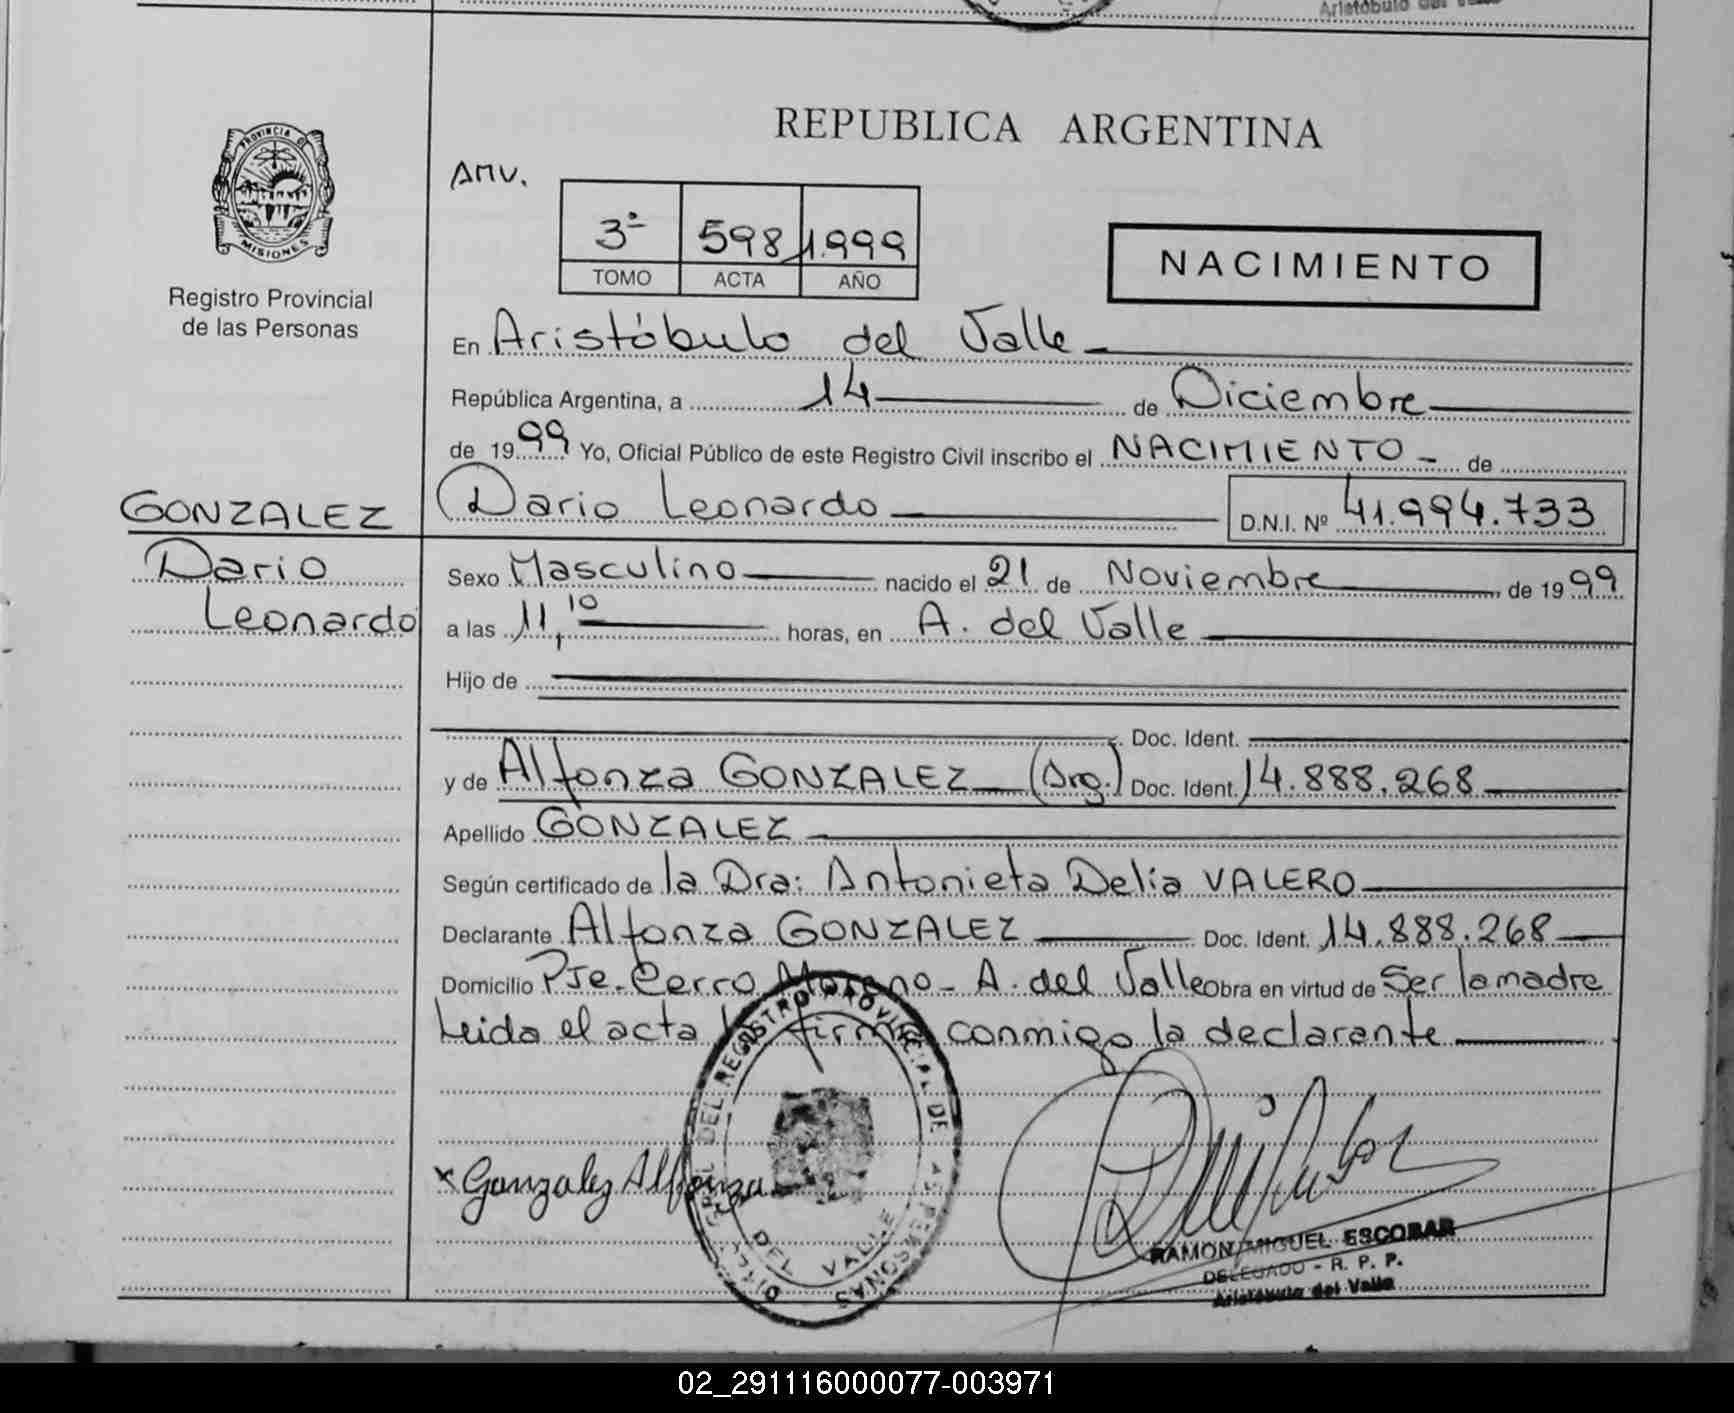 Aristóbulo del Valle
PROVINCIA DE
MISIONES
Registro Provincial
de las Personas
REPUBLICA ARGENTINA
AMV.
3º 598 1.999
TOMO ACTA AÑO
NACIMIENTO
En Aristóbulo del Valle
República Argentina, a 14 de Diciembre
de 1999 Yo, Oficial Público de este Registro Civil inscribo el NACIMIENTO - de
GONZALEZ Dario Leonardo D.N.I. Nº 41.994.733
Dario Sexo Masculino nacido el 21 de Noviembre de 1999
Leonardo a las 11,10 horas, en A. del Valle
Hijo de
Doc. Ident.
y de Alfonza GONZALEZ (Arg.) Doc. Ident. 14.888.268
Apellido GONZALEZ
Según certificado de la Dra: Antonieta Delia VALERO
Declarante Alfonza GONZALEZ Doc. Ident. 14.888.268
Domicilio Pje. Cerro Moreno - A. del Valle Obra en virtud de Ser la madre
Leida el acta la firma conmigo la declarante
x Gonzalez Alfonza
DEL REGISTRO PROVINCIAL DE LAS PERSONAS
DEL VALLE
RAMON MIGUEL ESCOBAR
DELEGADO - R. P. P.
Aristóbulo del Valle
02_291116000077-003971